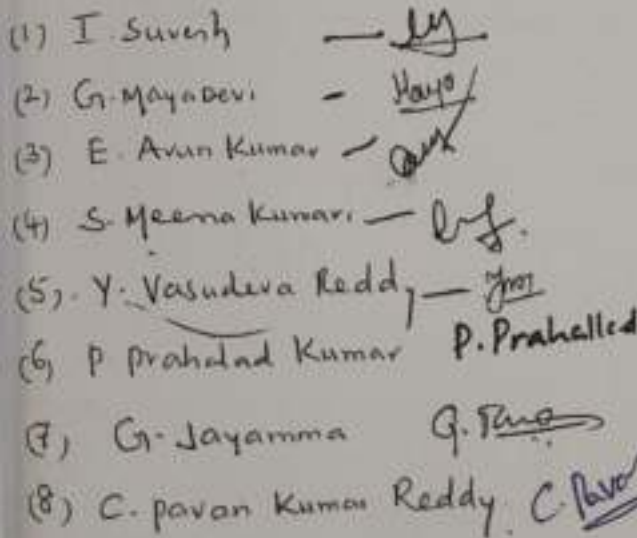 (1) I. Suresh —
(2) G. Maya Devi - Maya
(3) E. Arun Kumar -
(4) S. Meena Kumari —
(5). Y. Vasudeva Reddy —
(6) P Prahalad Kumar P. Prahalled
(7) G. Jayamma G.
(8) C. Pavan Kumar Reddy. C. Pavan